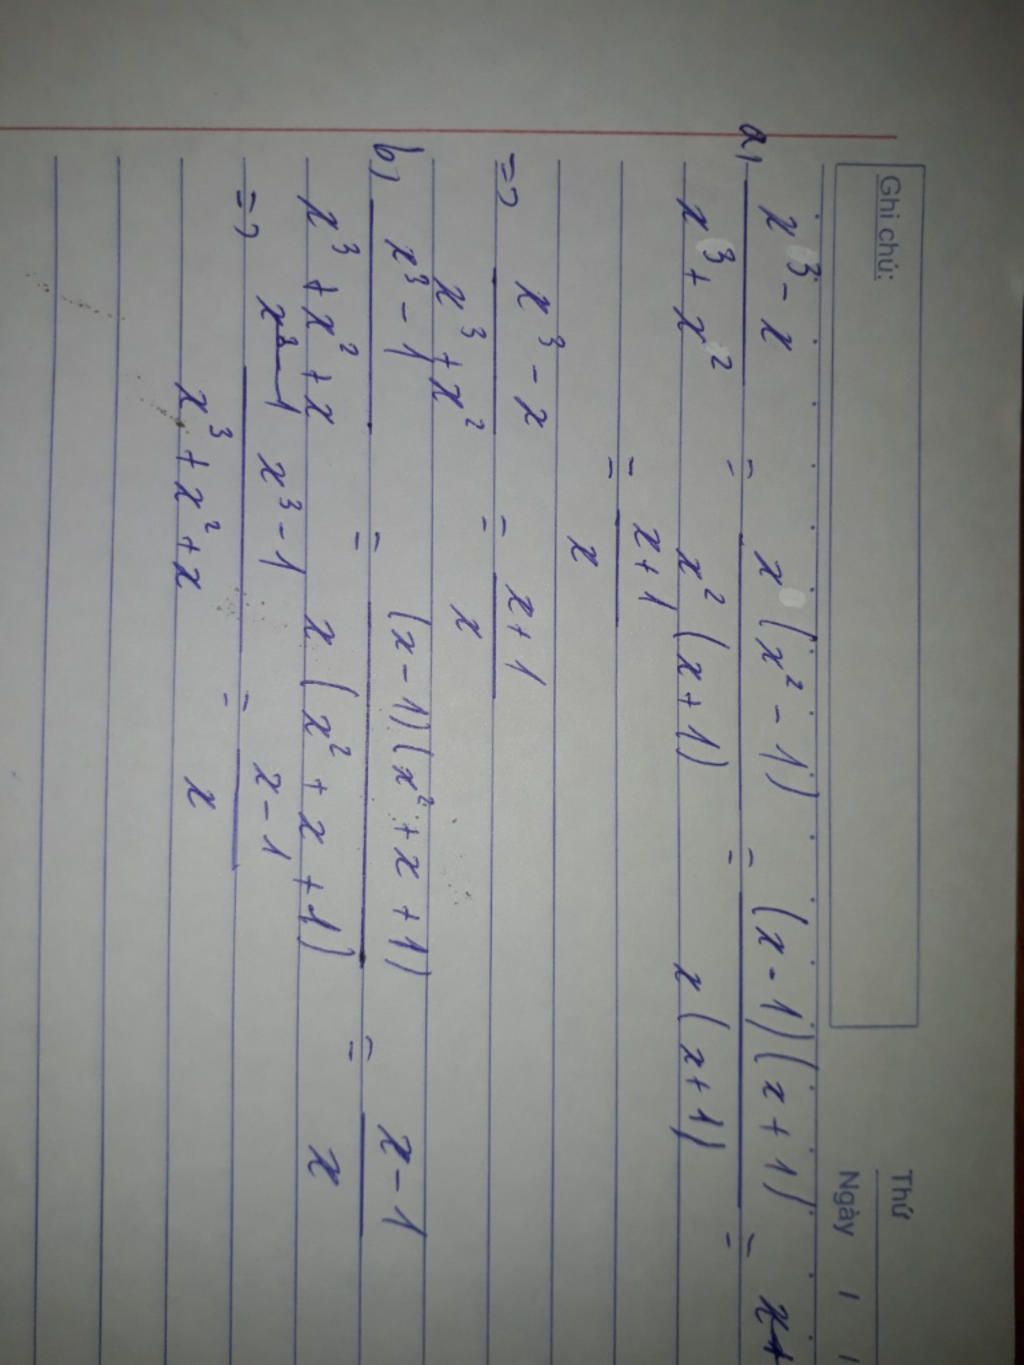 Ghi chú:
Thứ
Ngày / /
a, x³ - x / x³ + x² = x(x² - 1) / x²(x + 1) = (x - 1)(x + 1) / x(x + 1) =
= x + 1 / x
=> x³ - x / x³ + x² = x + 1 / x
b, x³ - 1 / x³ + x² + x = (x - 1)(x² + x + 1) / x(x² + x + 1) = x - 1 / x
=> x³ - 1 / x³ + x² + x = x - 1 / x